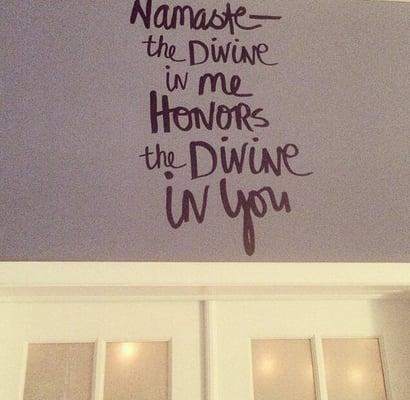 Namaste—
the Divine
in me
Honors
the Divine
in you